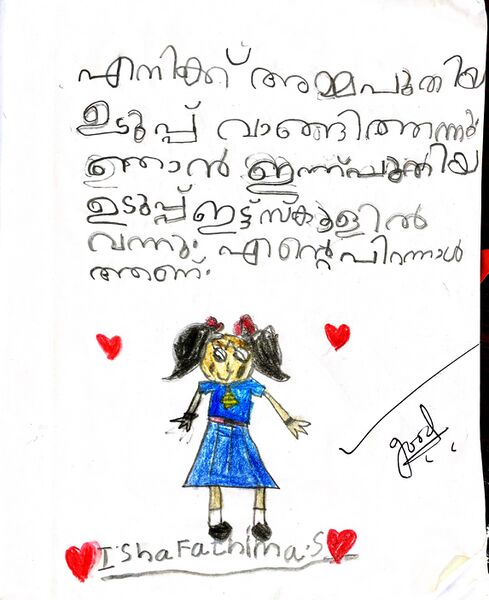 എനിക്ക് അമ്മ പുതിയ
ഉടുപ്പ് വാങ്ങിത്തന്നു.
ഞാൻ ഇന്ന് പുതിയ
ഉടുപ്പ് ഇട്ട് സ്കൂളിൽ
വന്നു. എന്റെ പിറന്നാൾ
ത്തണ്.
good
Isha Fathima.S